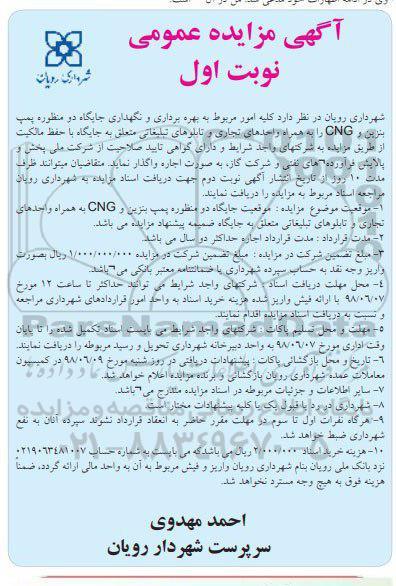 آگهی مزایده عمومی
نوبت اول
شهرداری رویان
شهرداری رویان در نظر دارد کلیه امور مربوط به بهره برداری و نگهداری جایگاه دو منظوره پمپ
بنزین و CNG را به همراه واحدهای تجاری و تابلوهای تبلیغاتی متعلق به جایگاه با حفظ مالکیت
از طریق مزایده به شرکتهای واجد شرایط و دارای گواهی تایید صلاحیت از شرکت ملی پخش و
پالایش فرآورده های نفتی و شرکت گاز، به صورت اجاره واگذار نماید. متقاضیان میتوانند ظرف
مدت ۱۰ روز از تاریخ انتشار آگهی نوبت دوم جهت دریافت اسناد مزایده به شهرداری رویان
مراجعه اسناد مربوط به مزایده را دریافت نمایند.
۱- موقعیت موضوع مزایده : موقعیت جایگاه دو منظوره پمپ بنزین و CNG به همراه واحدهای
تجاری و تابلوهای تبلیغاتی متعلق به جایگاه ضمیمه پیشنهاد مزایده می باشد.
۲- مدت قرارداد : مدت قرارداد اجاره حداکثر دو سال می باشد.
۳- مبلغ تضمین شرکت در مزایده : مبلغ تضمین شرکت در مزایده ۱/۰۰۰/۰۰۰/۰۰۰ ریال بصورت
واریز وجه نقد به حساب سپرده شهرداری یا ضمانتنامه معتبر بانکی می باشد.
۴- محل مهلت دریافت اسناد : شرکتهای واجد شرایط می توانند حداکثر تا ساعت ۱۲ مورخ
۹۸/۰۶/۰۷ با ارائه فیش واریز شده هزینه خرید اسناد به واحد امور قراردادهای شهرداری مراجعه
و نسبت به دریافت اسناد مزایده اقدام نمایند.
۵- مهلت و محل تسلیم پاکات : شرکتهای واجد شرایط می بایست اسناد تکمیل شده را تا پایان
وقت اداری مورخ ۹۸/۰۶/۰۷ به واحد دبیرخانه شهرداری تحویل و رسید مربوطه را دریافت نمایند.
۶- تاریخ و محل بازگشائی پاکات : پیشنهادات دریافتی در روز شنبه مورخ ۹۸/۰۶/۰۹ در کمیسیون
معاملات عمده شهرداری رویان بازگشائی و برنده مزایده اعلام خواهد شد.
۷- سایر اطلاعات و جزئیات مربوطه در اسناد مزایده مندرج می باشد.
۸- شهرداری در رد یا قبول یک یا کلیه پیشنهادات مختار است.
۹- هرگاه نفرات اول تا سوم در مهلت مقرر حاضر به انعقاد قرارداد نشوند سپرده آنان به نفع
شهرداری ضبط خواهد شد.
۱۰- هزینه خرید اسناد ۲/۰۰۰/۰۰۰ ریال می باشد که می بایست به شماره حساب ۰۲۱۹۰۶۳۴۸۱۰۰۷
نزد بانک ملی رویان بنام شهرداری رویان واریز و فیش مربوط به آن به واحد مالی ارائه گردد، ضمناً
هزینه فوق به هیچ وجه مسترد نخواهد شد.
احمد مهدوی
سرپرست شهردار رویان